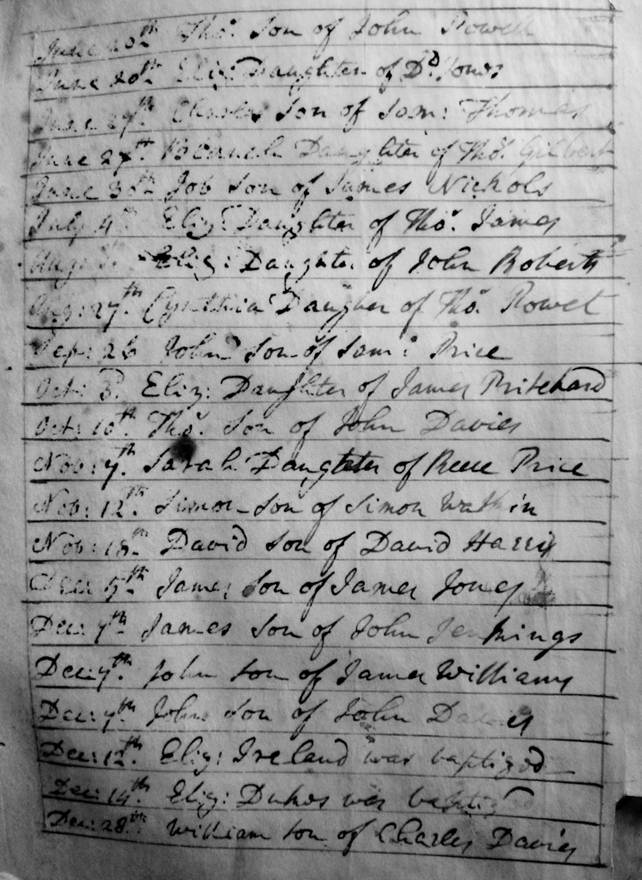 June 20th Thos. Son of John Powell
June 20th Eliz: Daughter of Dd. Jones
June 27th Charles Son of Sam: Thomas
June 27th Blanch Daughter of Thos. Gilbert
June 30th Job Son of James Nichols
July 4th Eliz Daughter of Thos. James
Aug: Eliz: Daughter of John Roberts
27th. Cynthia Daugher of Thos. Powel
Sep: 26 John Son of Sam: Price
Oct: 3. Eliz: Daughter of James Pritchard
Oct: 10th. Thos. Son of John Davies
Nov: 7th. Sarah Daughter of Reece Price
Nov: 12th Simon Son of Simon Watkin
Nov: 18th David Son of David Harris
Dec: 5th James Son of James Jones
Dec: 7th James Son of John Jennings
Dec: 7th. John Son of James Williams
Dec: 7th. John Son of John Davies
Dec: 12th Eliz: Ireland was baptized
Dec: 14th. Eliz: Dukes was
Dec: 28th William Son of Charles Davies